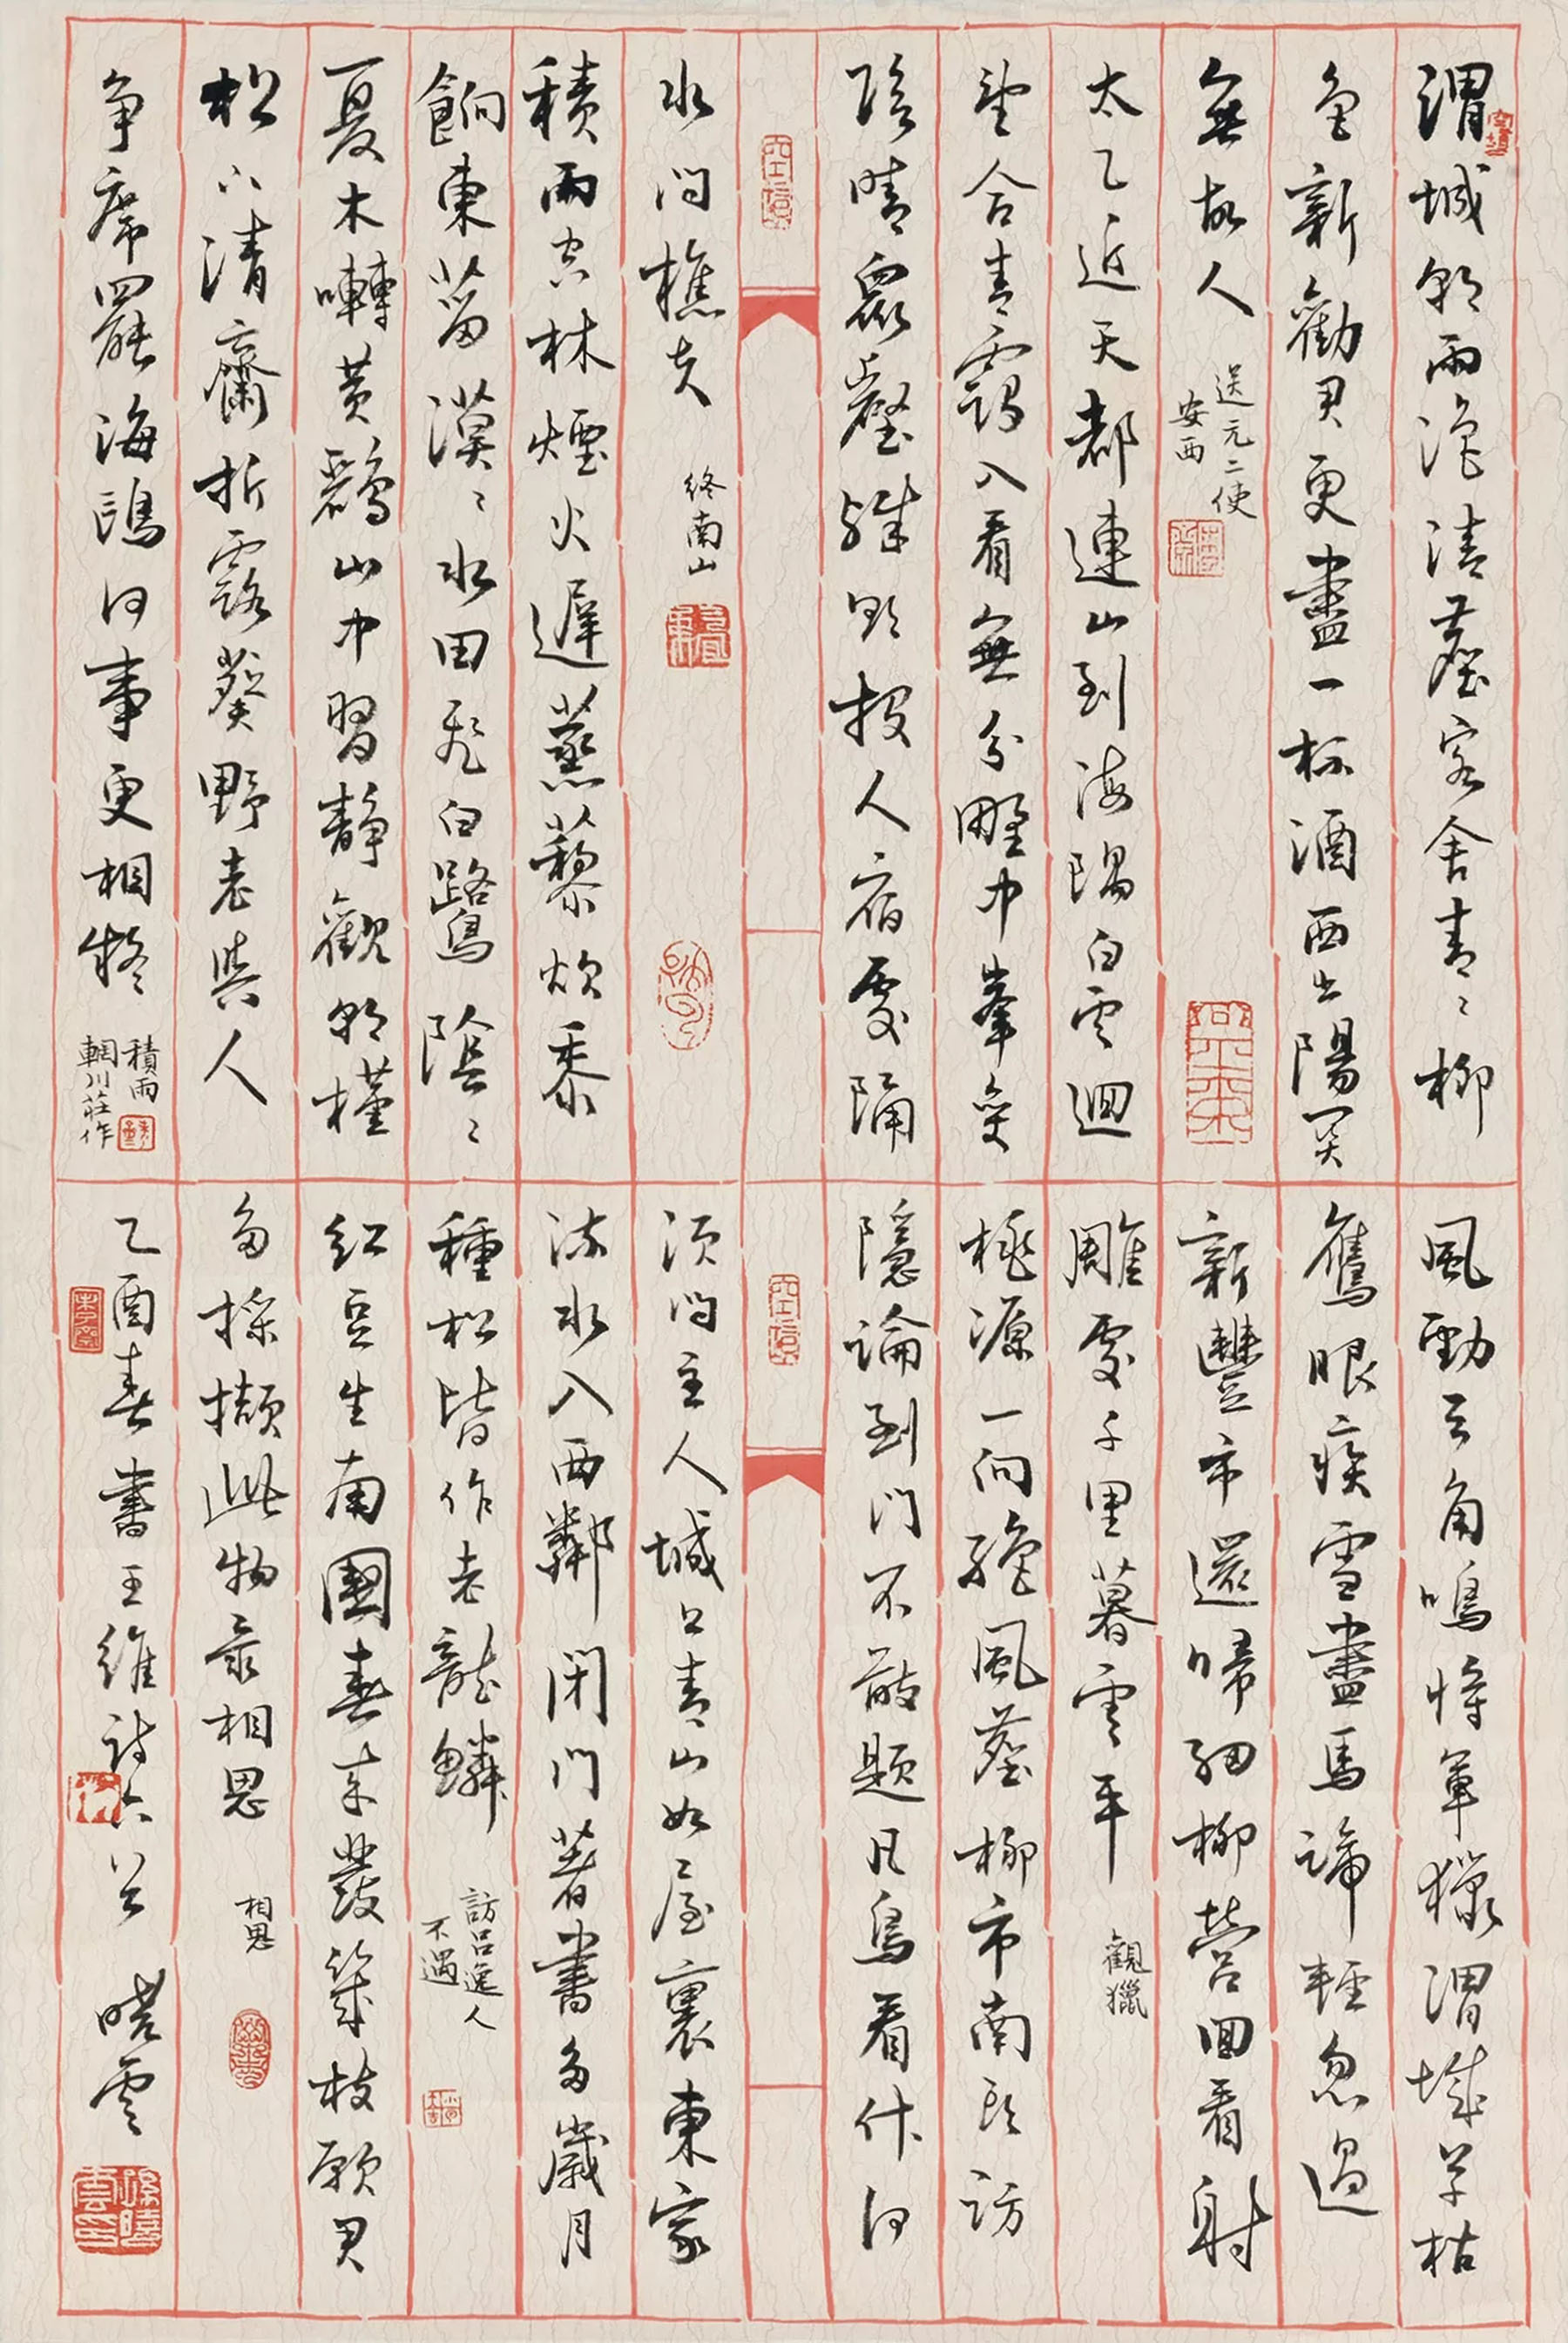 渭城朝雨浥清塵客舍青青柳
色新勸君更盡一杯酒西出陽關
無故人
送元二使
安西
太乙近天都連山到海隅白雲迴
望合青靄入看無分野中峯變
陰晴眾壑殊欲投人宿處隔
水問樵夫
終南山
積雨空林煙火遲蒸藜炊黍
餉東菑漠漠水田飛白鷺陰陰
夏木囀黃鸝山中習靜觀朝槿
松下清齋折露葵野老與人
爭席罷海鷗何事更相疑
積雨
輞川莊作
風勁弓角鳴將軍獵渭城草枯
鷹眼疾雪盡馬蹄輕忽過
新豐市還歸細柳營回看射
雕處千里暮雲平
觀獵
桃源一向絕風塵柳市南頭訪
隱淪到門不敢題凡鳥看竹何
須問主人城上青山如屋裏東家
流水入西鄰閉門著書多歲月
種松皆作老龍鱗
訪呂逸人
不遇
紅豆生南國春來發幾枝願君
多採擷此物最相思
相思
乙酉春書王維詩六首 曉雲